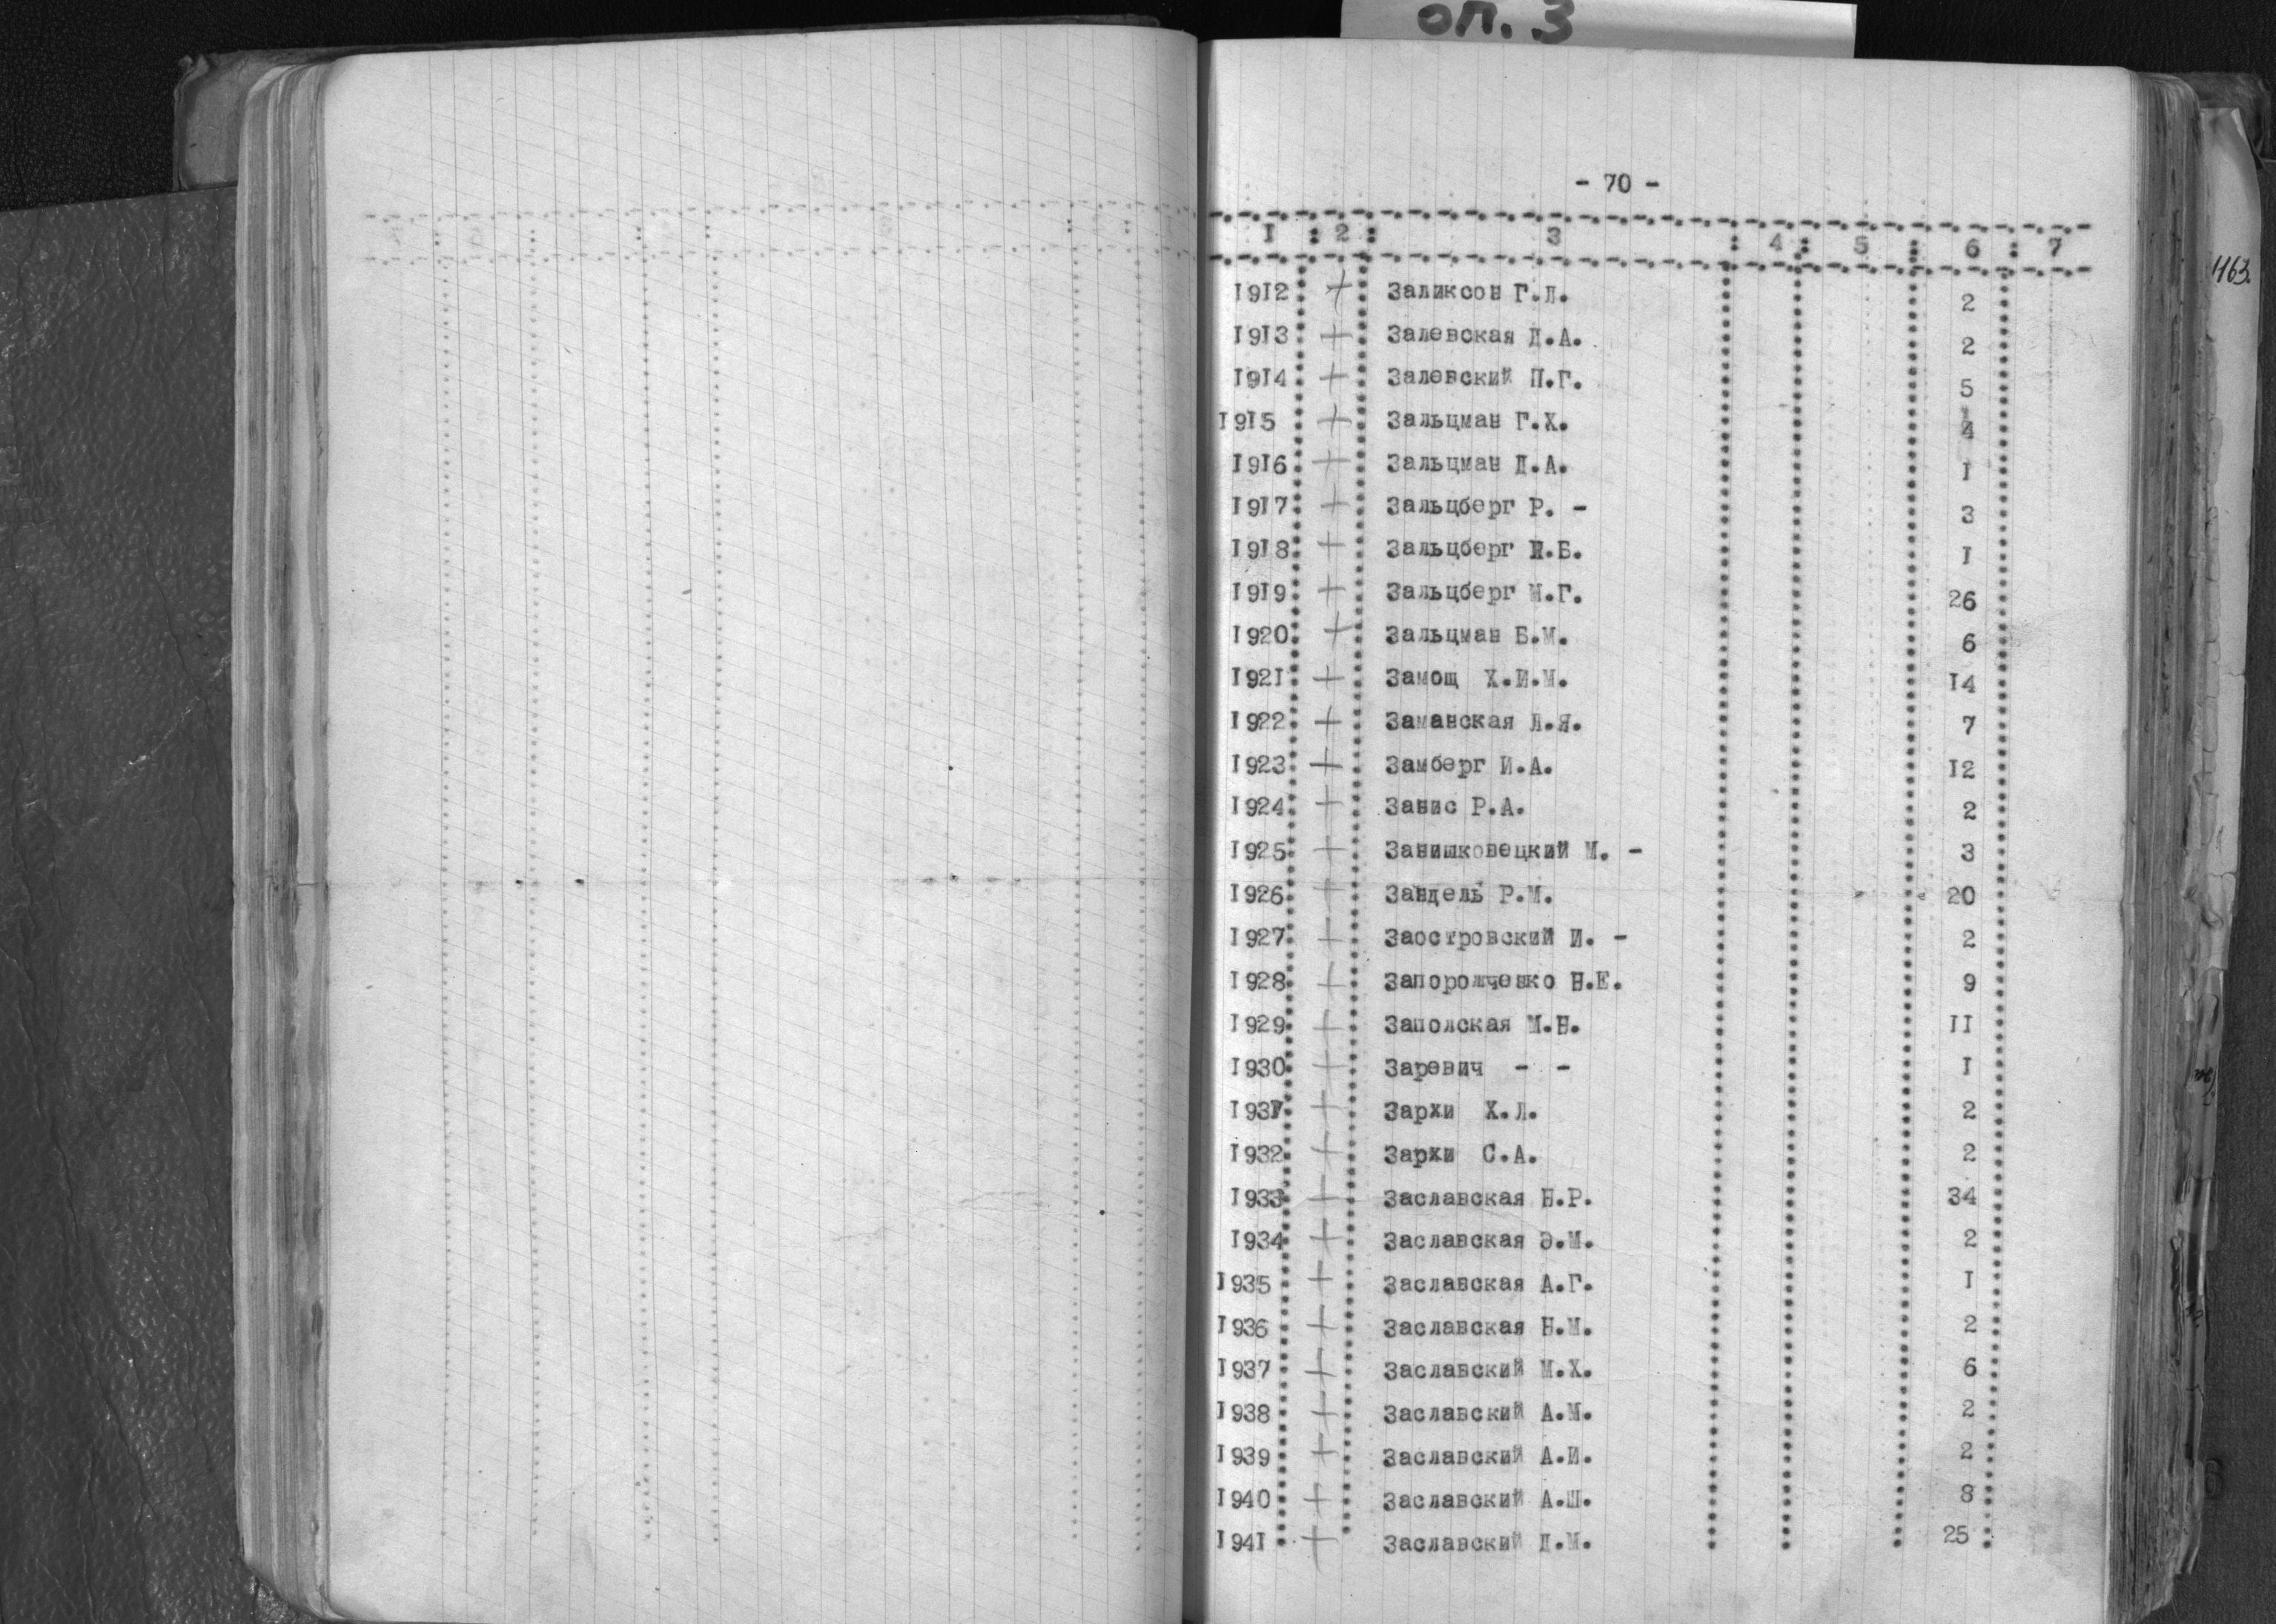 оп. 3
- 70 -
I : 2 : 3 : 4 : 5 : 6 : 7
463
I9I2 + Заликсон Г.Л. 2
I9I3 + Залевская Д.А. 2
I9I4 + Залевский П.Г. 5
I9I5 + Зальцман Г.Х. 4
I9I6 + Зальцман Д.А. I
I9I7 + Зальцберг Р. - 3
I9I8 + Зальцберг И.Б. I
I9I9 + Зальцберг М.Г. 26
I920 + Зальцман Б.М. 6
I92I + Замощ Х.И.М. I4
I922 + Заманская Л.Я. 7
I923 + Замберг И.А. I2
I924 + Занис Р.А. 2
I925 + Занишковецкий М. - 3
I926 + Зандель Р.М. 20
I927 + Заостровский И. - 2
I928 + Запорожченко Н.Е. 9
I929 + Заполская М.Н. II
I930 + Заревич - - I
I93I + Зархи Х.Л. 2
I932 + Зархи С.А. 2
I933 + Заславская Н.Р. 34
I934 + Заславская Э.М. 2
I935 + Заславская А.Г. I
I936 + Заславская Н.М. 2
I937 + Заславский М.Х. 6
I938 + Заславский А.М. 2
I939 + Заславский А.И. 2
I940 + Заславский А.Ш. 8
I94I + Заславский Д.М. 25